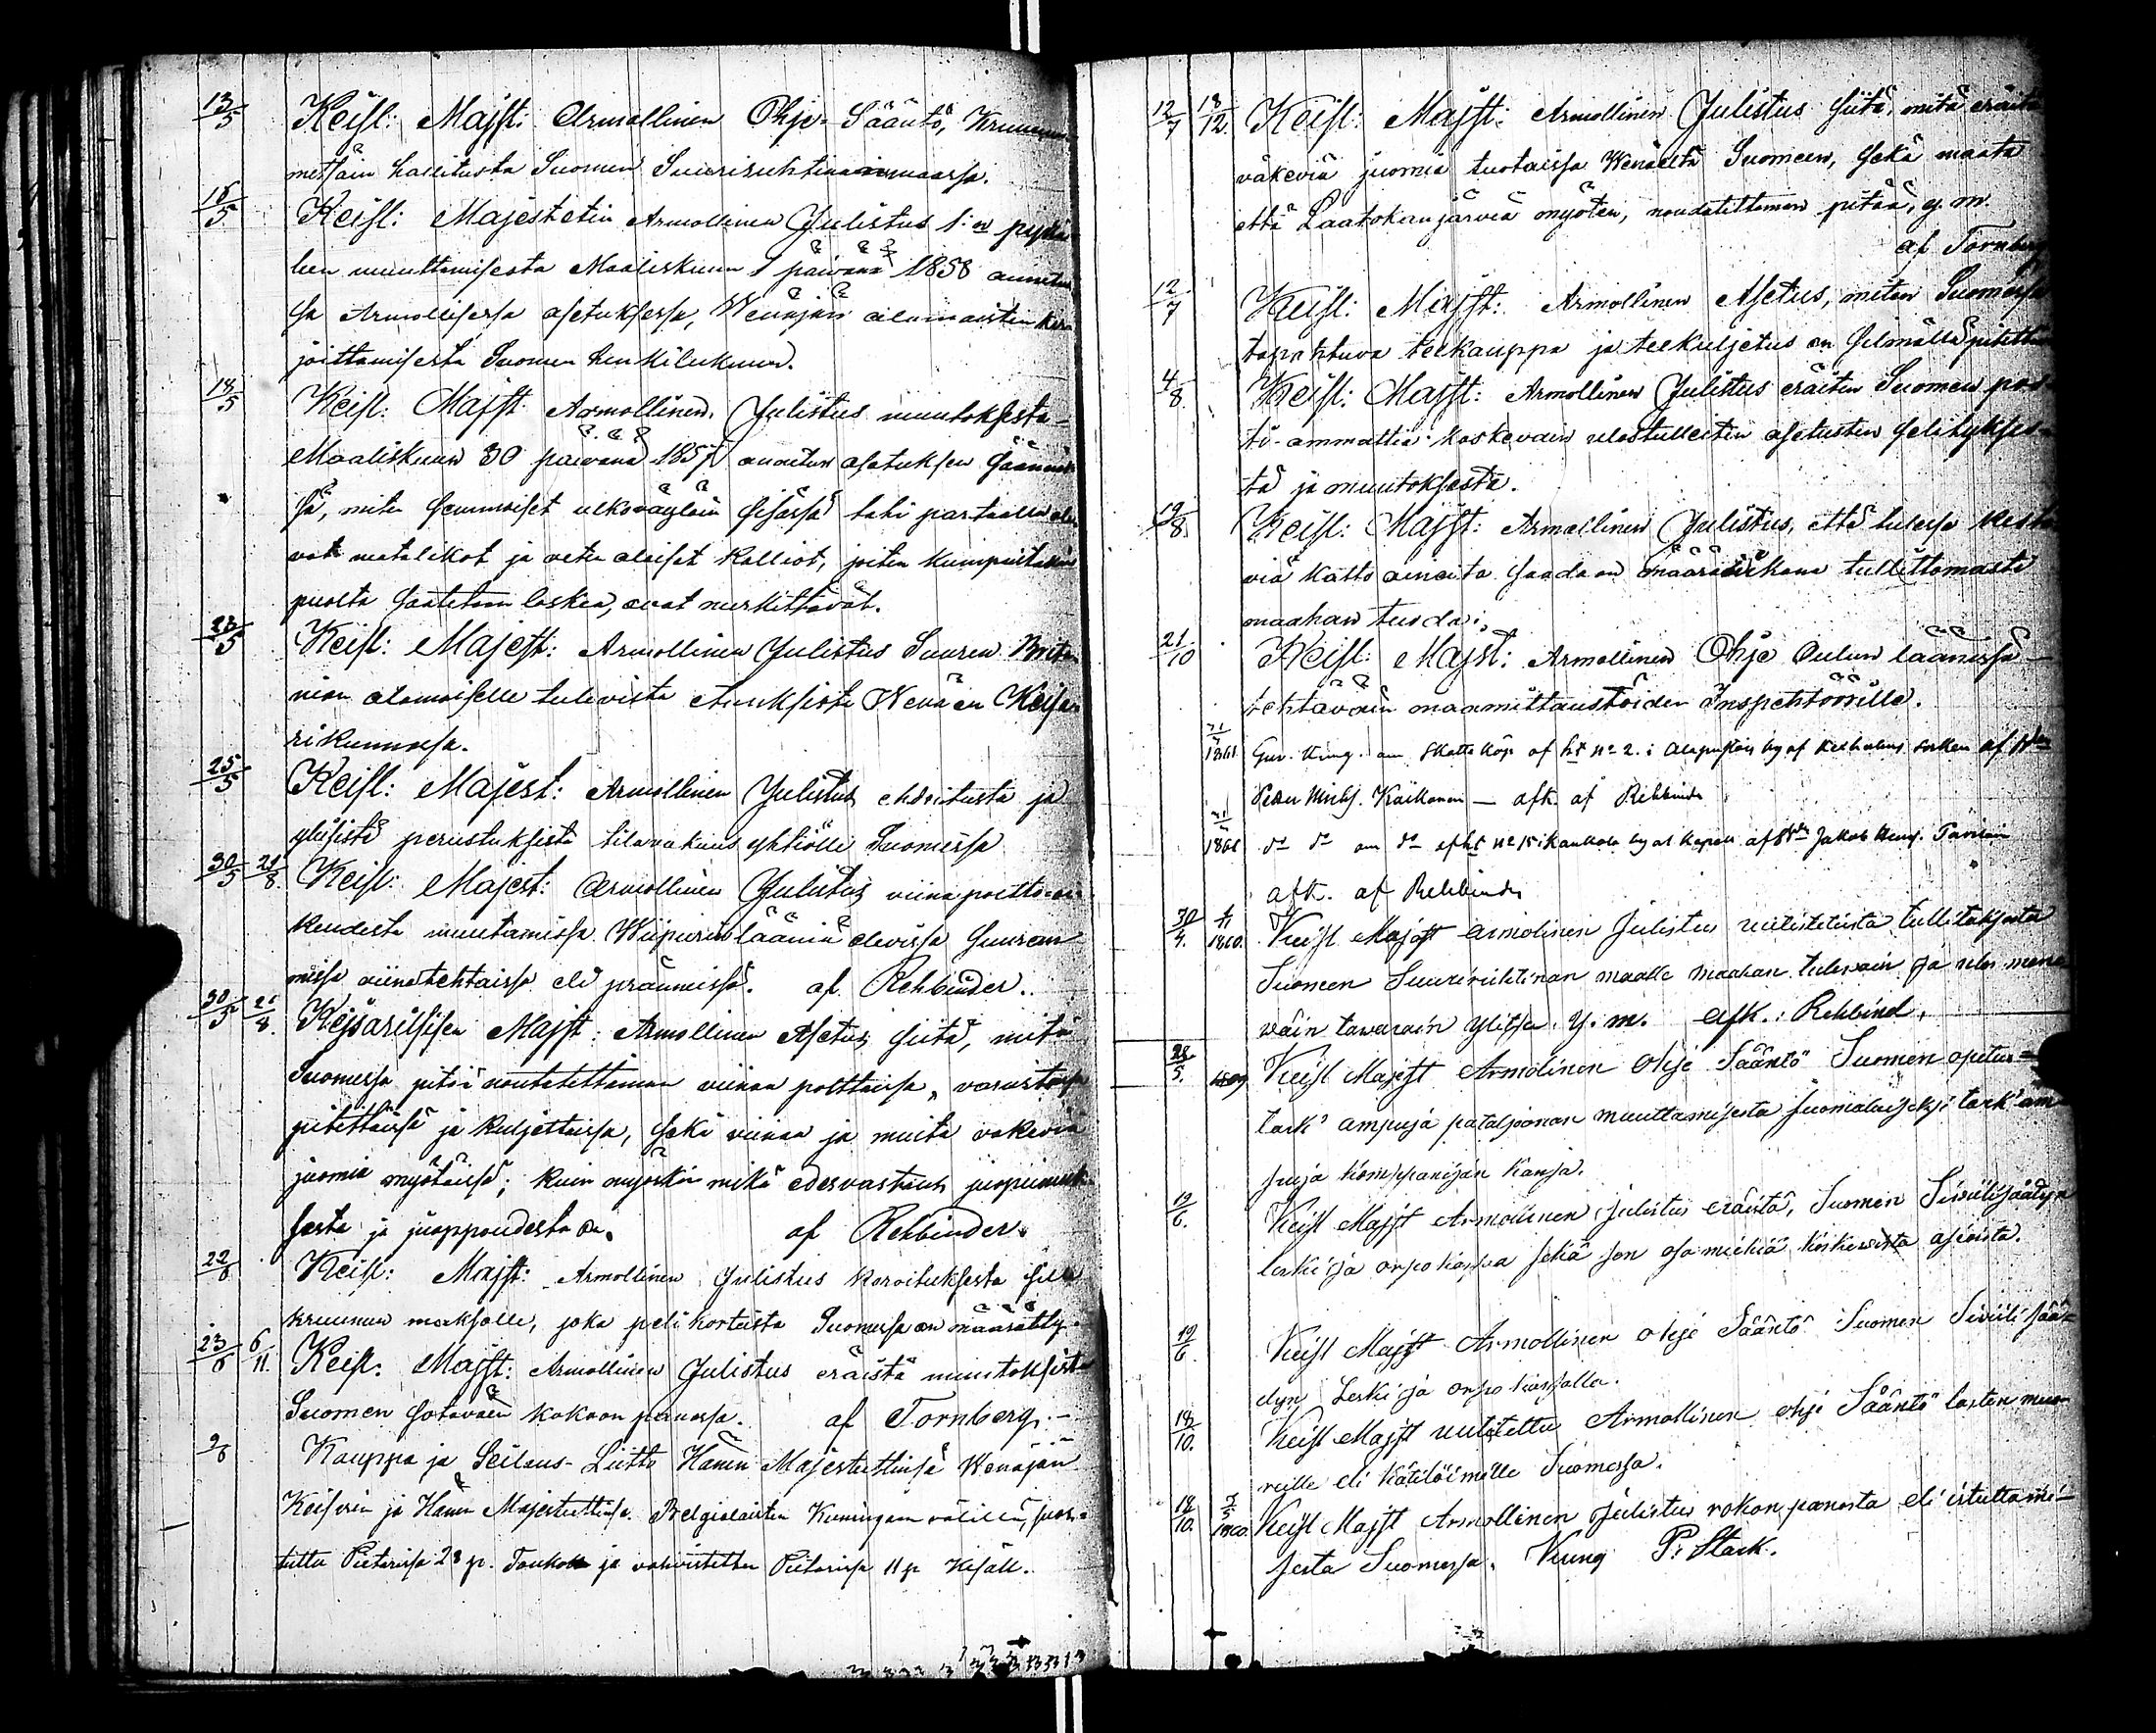 13/5 Keisl: Majst: Armollinen Ohje-Sääntö, Kruunun
metsäin hallitusta Suomen Suuriruhtinaanmaassa.
15/5 Keisl: Majestetin Armollinen Julistus 1:n pykä
len muuttamisesta Maaliskuun 1 päivänä 1858 annetus
sa Armollisessa asetuksessa, Wenäjän alamaisten kir
joittamisesta Suomen henkilukuun.
18/5 Keisl: Majst. Armollinen Julistus muutoksesta
Maaliskuun 30 päivänä 1857 annetun asetuksen säännös
sä, miten semmoiset ulkoväyläin sisässä tahi partaalla ole
vat matalikot ja veden alaiset kalliot, joiden kumpaistakin
puolta saatetaan laskea, ovat merkittävät.
23/5 Keisl: Majest: Armollinen Julistus Suuren Brita
nian alamaiselle tulevista etuuksista Wenäen Keisa
rikunnassa.
25/5 Keisl: Majest: Armollinen Julistus ehdoitusta ja
yleisistä perustuksista lilavakuus yhtiölle Suomessa
30/5 21/8. Keisl: Majest: Armollinen Julistus viinapoltto-oi
keudesta muutamissa Wiipurin läänin olevissa suurem
missa viinatehtaissa eli prännissä. af Rehbinder.
30/5 21/8. Kejsarillisen Majst: Armollinen Asetus siitä, mitä
Suomessa pitää noutatettaman viinaa polttaissa, varustaissa
pitettäissä ja kuljettaissa, sekä viinaa ja muita väkeviä
juomia myötäissä; kuin myöskin mikä edesvastaus juopumuk
sesta ja juoppoudesta on. af Rehbinder.
22/6 Keisl: Majst: Armollinen Julistus koroituksesta sille
kruunun maksolle, joka pelikorteista Suomessa on määrätty.
23/6 6/11. Keisl: Majst: Armollinen Julistus eräistä muutoksista
Suomen sotaväen kokoon panossa. af Tornberg.
2/6 Kauppa ja Seilaus-Liitto Hänen Majesteettinsä Wenäjän
Keisarin ja Hänen Majesteettinsa Belgialaisten Kuninkaan välillä, suos
tettu Pietarissa 28 p. Toukok ja vahvistettu Pietarissa 11 p Kesäk.
12/7 18/12. Keisl: Majst: Armollinen Julistus siitä, mitä eräitä
väkeviä juomia tuotaissa Wenäeltä Suomeen, sekä maata
että Laatokan järveä myöten, noudatettaman pitää, y. m.
af Tornberg
12/7 Keisl: Majst: Armollinen Asetus, miten Suomessa
tapahtuva teekauppa ja teekuljetus on silmällä pitettävä
4/8. Keisl: Majst: Armollinen Julistus eräiten Suomen pos
ti-ammattia koskevain ulostulleiten asetusten selityksis
tä ja muutoksesta.
19/8. Keisl: Majst: Armollinen Julistus, että tulessa kestä
viä katto aineita saadaan määräaikana tullittomasti
maahan tuoda.
21/10 Keisl: Majst: Armollinen Ohje Oulun läänissä
tehtäväin maamittaustöiden Inspehtöörille.
1861 Guv. Kung. om Skatteköp af ht No 2. i by af Kexholms socken af
Petter Kaikonen — aftk. af Rehbinder
1861 dº dº om dº af ht No 15 i Kaukola by at kapell af Jakob Henr.
aftk. af Rehbinder
30/4. 1860. Keisl Majest Armolinen Julistus uutistetusta tullitaksasta
Suomen Suuriruhtinan maalle maahan tulewain ja ulos mene
wäin tawarain ylitse. y. m. aftk.: Rehbind.
28/5. 1859 Keisl Majest Armolinen Ohje Sääntö Suomen opetus=
tark' ampuja pataljoonan muuttamisesta suomalaiseksi tark'am
puja komppanijan kansa.
19/6. Keisl Majst Armollinen Julistus eräistä, Suomen Siwilisäädyn
leski ja orpokassa sekä sen osamiehiä koskewista asioista.
19/6. Keisl Majst Armollinen ohje Sääntö Suomen Siwili sää=
dyn Leski ja orpo kassalla.
18/10. Keisl Majst uutistettu Armollinen ohje Sääntö lasten muo
reille eli kätilöimille Suomessa.
18/10. 1860. Keisl Majst Armollinen Julistus rokon panosta eli istuttami-
sesta Suomessa. Kung P. Stark.